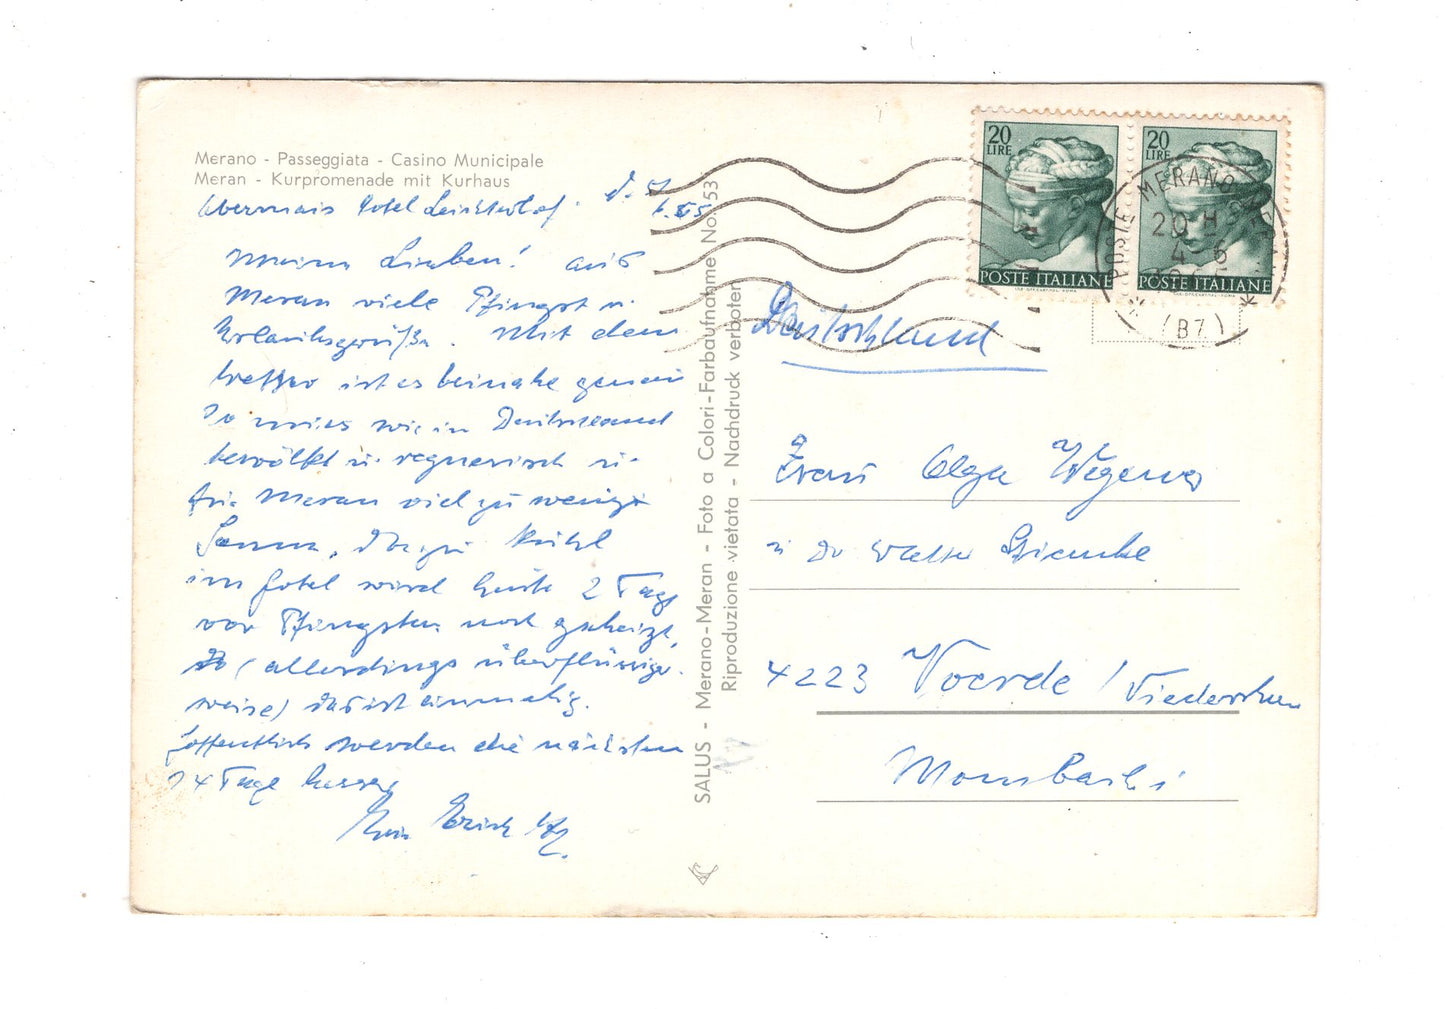 Merano - Passeggiata - Casino Municipale
Meran - Kurpromenade mit Kurhaus
Obermais Hotel
Meine Lieben! Aus
Meran viele Pfingst u.
Urlaubsgrüße. Mit dem
Wetter ist es beinahe genau
so mies wie in Deutschland
bewölkt u. regnerisch u.
für Meran viel zu wenig
Sonne, dazu kühl
im Hotel wird heute 2 Tage
vor Pfingsten noch geheizt,
(allerdings überflüssiger-
weise) das ist einmalig.
Hoffentlich werden die nächsten
14 Tage besser
Erich
SALUS - Merano-Meran - Foto a Colori-Farbaufnahme No. 53
Riproduzione vietata - Nachdruck verboten
20
LIRE
POSTE ITALIANE
20
LIRE
POSTE ITALIANE
POSTE MERANO
20 H
4-6
(BZ)
Deutschland
Frau Olga Wegener
u Dr Walter
4223 Voerde / Niederrhein